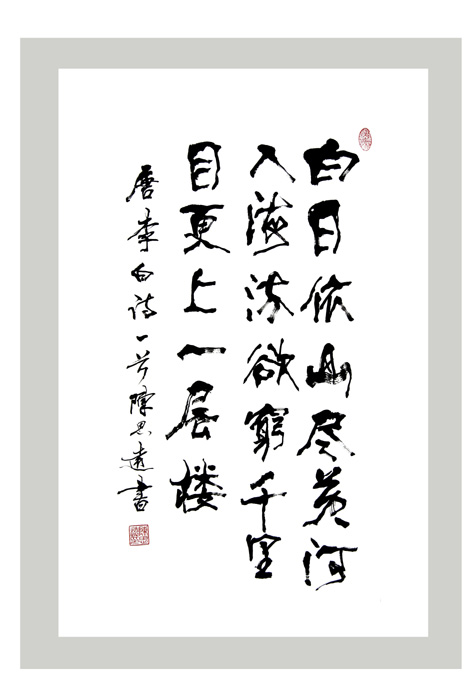 白日依山尽黄河
入海流欲窮千里
目更上一层楼
唐李白诗一首陳思書